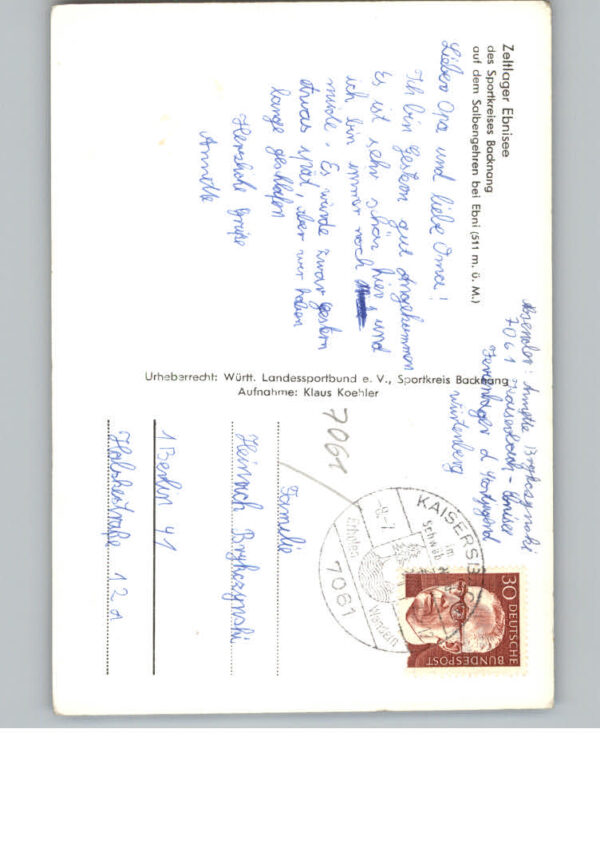 Zeltlager Ebnisee
des Sportkreises Backnang
auf dem Salbengehren bei Ebni (511 m. ü. M.)
Lieber Opa und liebe Oma!
Ich bin gestern gut angekommen
Es ist sehr schön hier und
ich bin immer noch
müde. Es wurde zwar gestern
etwas spät, aber wir haben
lange geschlafen
Herzliche Grüße
Annette
Absender: Annette
7061 Kaisersbach - Ebnisee
Ferienlager d. Sportjugend
Württenberg
Urheberrecht: Württ. Landessportbund e. V., Sportkreis Backnang
Aufnahme: Klaus Koehler
7061
KAISERSB
im
Schwäb
Wandern
7061
30 DEUTSCHE
BUNDESPOST
Familie
Heinrich
1 Berlin 41
Holsteinstraße 12a